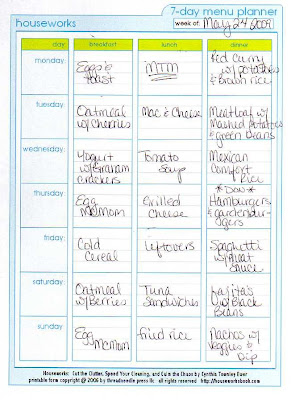 7-day menu planner
houseworks
week of: May 24 2009
day breakfast lunch dinner
monday:
Eggs &
toast
MTM
Red Curry
w/ potatoes
& brown rice
tuesday:
Oatmeal
w/ Cherries
Mac & Cheese
Meatloaf w/
Mashed Potatoes
& green Beans
wednesday:
Yogurt
w/ Graham
crackers
Tomato
Soup
Mexican
Comfort
Rice
thursday:
Egg
McMom
Grilled
Cheese
* Don *
Hamburgers
& gardenbur-
gers
friday:
Cold
Cereal
leftovers
Spaghetti
w/ Meat
Sauce
saturday:
Oatmeal
w/ Berries
Tuna
Sandwiches
Fajitas
w/ Black
Beans
sunday:
Egg
McMom
fried rice
Nachos w/
Veggies &
Dip
Houseworks: Cut the Clutter, Speed Your Cleaning, and Calm the Chaos by Cynthia Townley Ewer
printable form copyright @ 2006 by threadneedle press llc all rights reserved http://houseworksbook.com